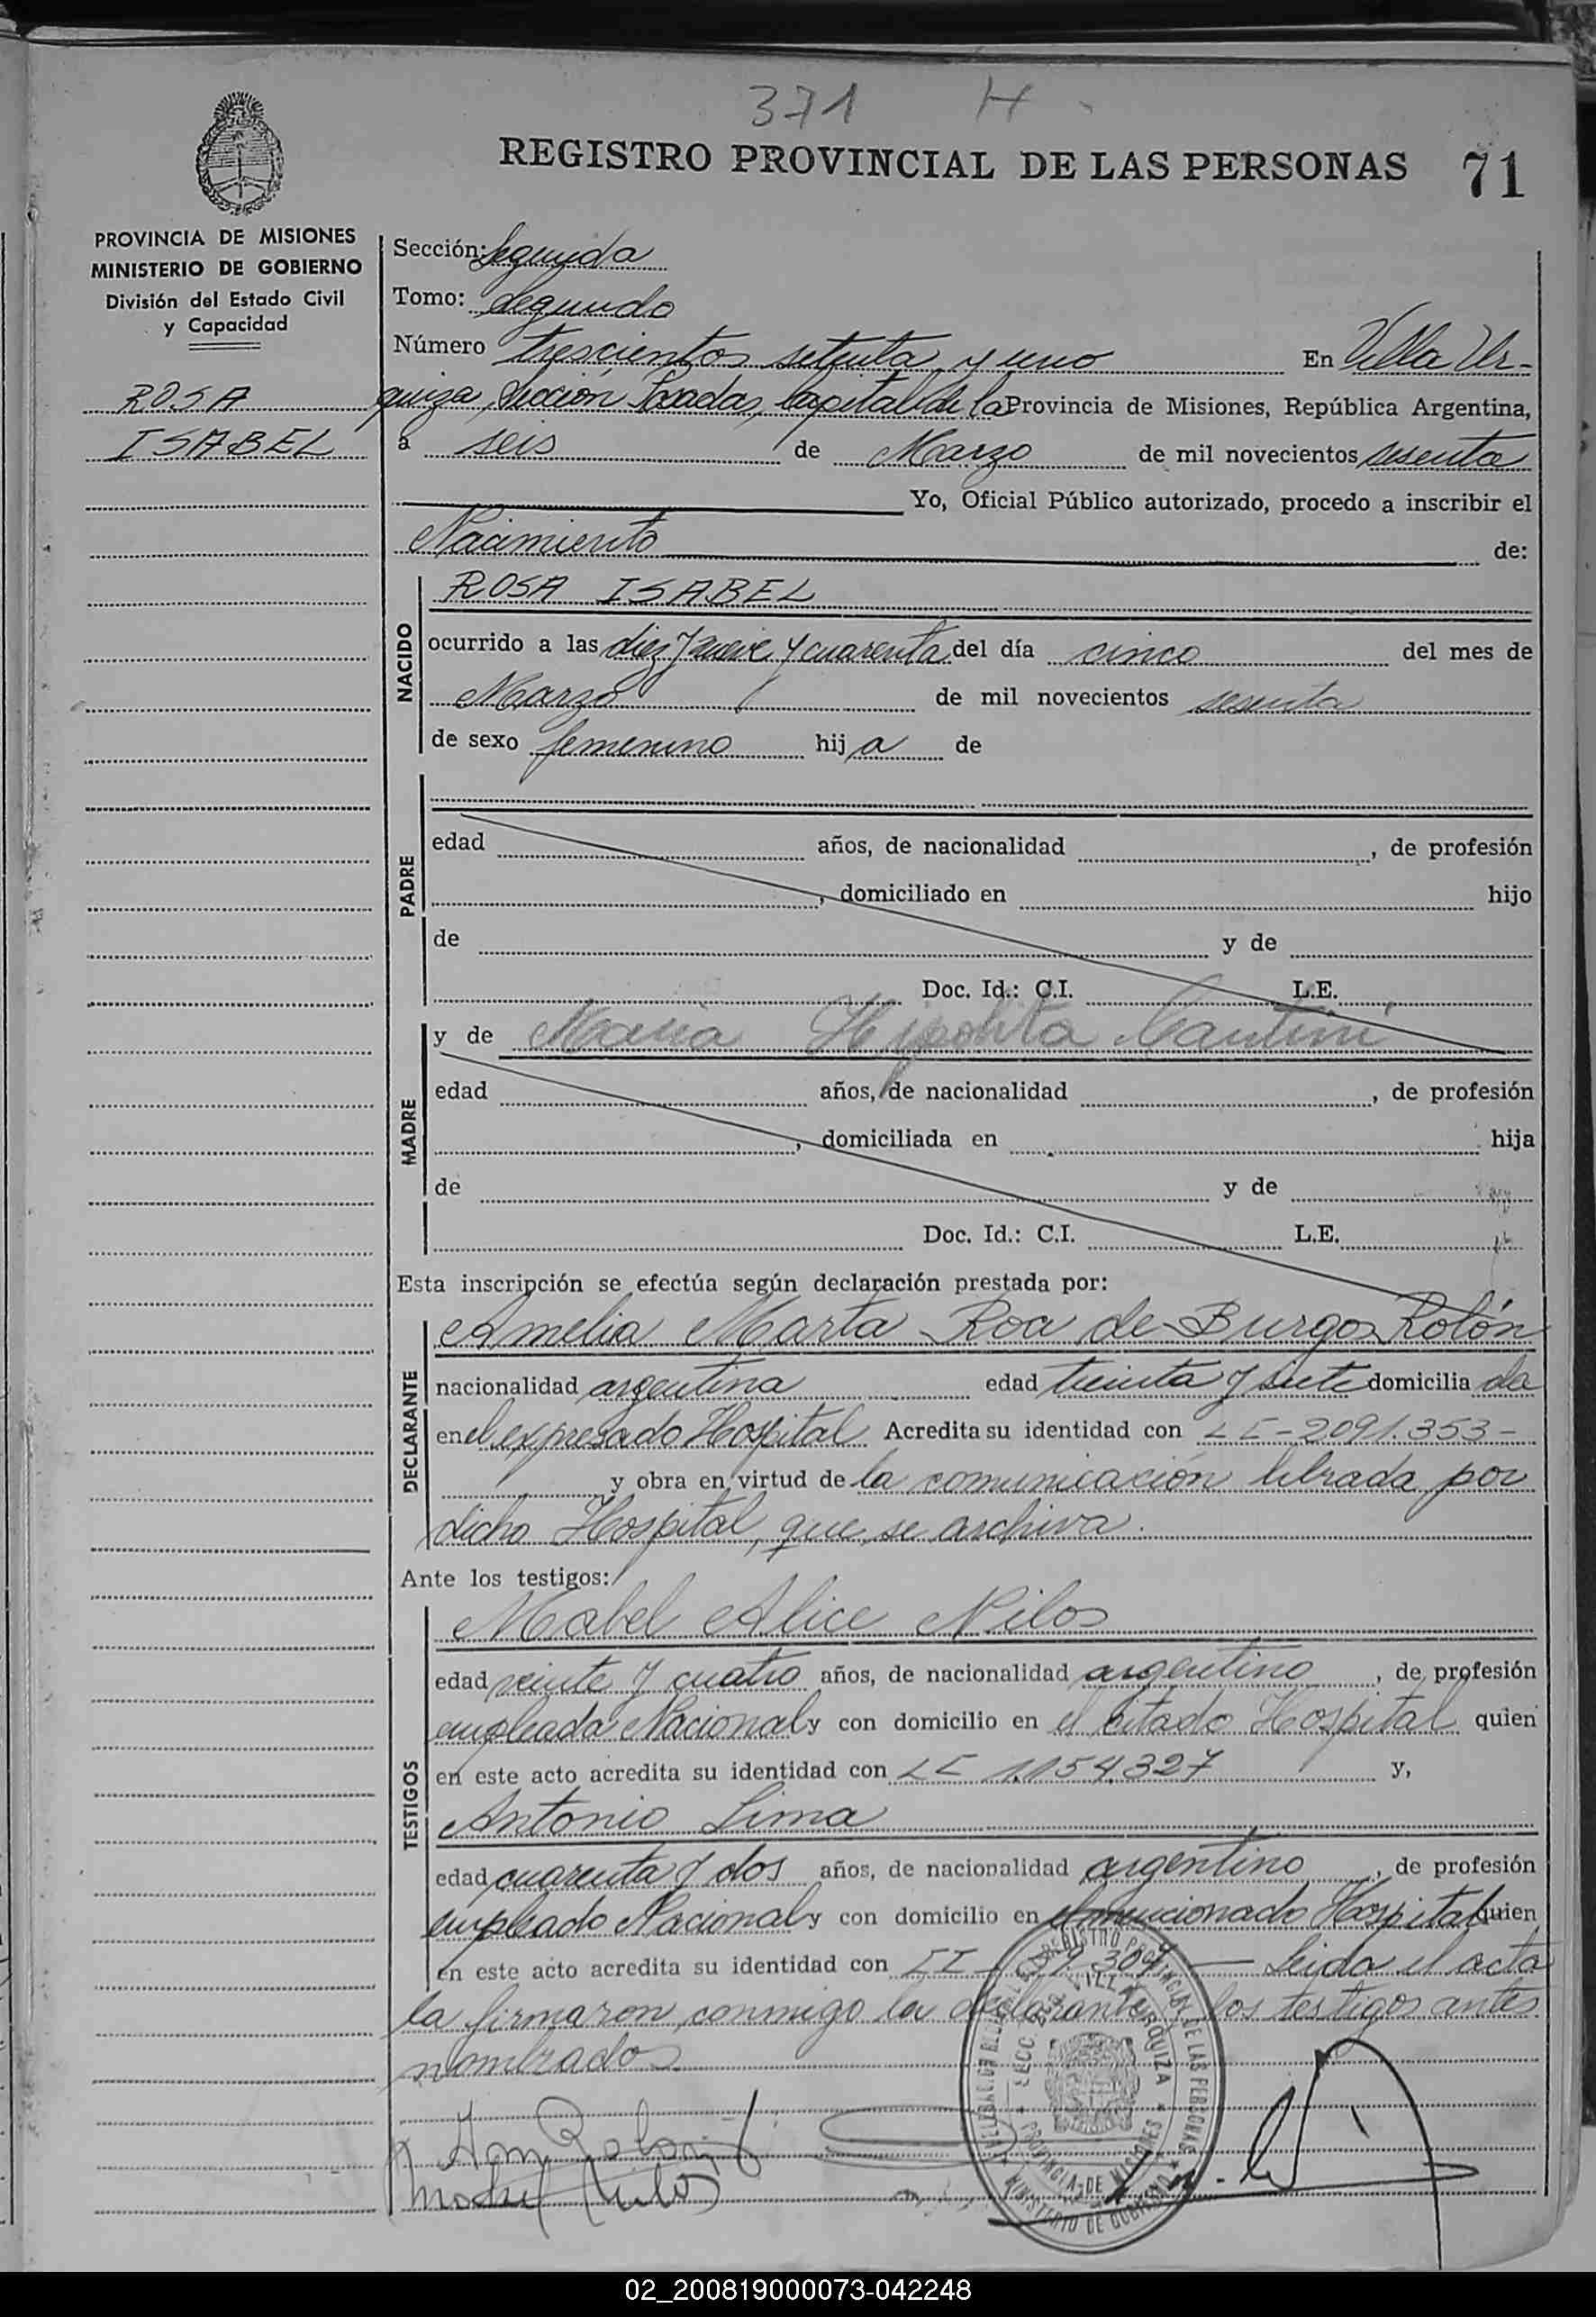 371 H
REGISTRO PROVINCIAL DE LAS PERSONAS 71
PROVINCIA DE MISIONES
MINISTERIO DE GOBIERNO
División del Estado Civil
y Capacidad
ROSA
ISABEL
Sección: Segunda
Tomo: Segundo
Número trescientos setenta y uno En Villa Ur-
quiza, Sección Posadas, Capital de la Provincia de Misiones, República Argentina,
a seis de Marzo de mil novecientos sesenta
Yo, Oficial Público autorizado, procedo a inscribir el
Nacimiento de:
NACIDO
ROSA ISABEL
ocurrido a las diez y nueve y cuarenta del día cinco del mes de
Marzo de mil novecientos sesenta
de sexo femenino hija de
PADRE
edad años, de nacionalidad , de profesión
, domiciliado en hijo
de y de
Doc. Id.: C.I. L.E.
MADRE
y de Maria Hipolita Cantini
edad años, de nacionalidad , de profesión
, domiciliada en hija
de y de
Doc. Id.: C.I. L.E.
Esta inscripción se efectúa según declaración prestada por:
DECLARANTE
Amelia Marta Roa de Burgos Rolón
nacionalidad argentina edad treinta y siete domiciliada
en el expresado Hospital Acredita su identidad con LC-2091.353-
y obra en virtud de la comunicación librada por
dicho Hospital, que se archiva.
Ante los testigos:
TESTIGOS
Mabel Alice Nilos
edad veinte y cuatro años, de nacionalidad argentino, de profesión
empleada Nacional y con domicilio en el citado Hospital quien
en este acto acredita su identidad con LC 1.154.327 y,
Antonio Lima
edad cuarenta y dos años, de nacionalidad argentino, de profesión
empleado Nacional y con domicilio en el mencionado Hospital quien
en este acto acredita su identidad con 309 — Leida el acta
la firmaron conmigo la declarante y los testigos antes
nombrados.
REGISTRO PROVINCIAL DE LAS PERSONAS
VILLA URQUIZA
PROVINCIA DE MISIONES
MINISTERIO DE GOBIERNO
02_200819000073-042248